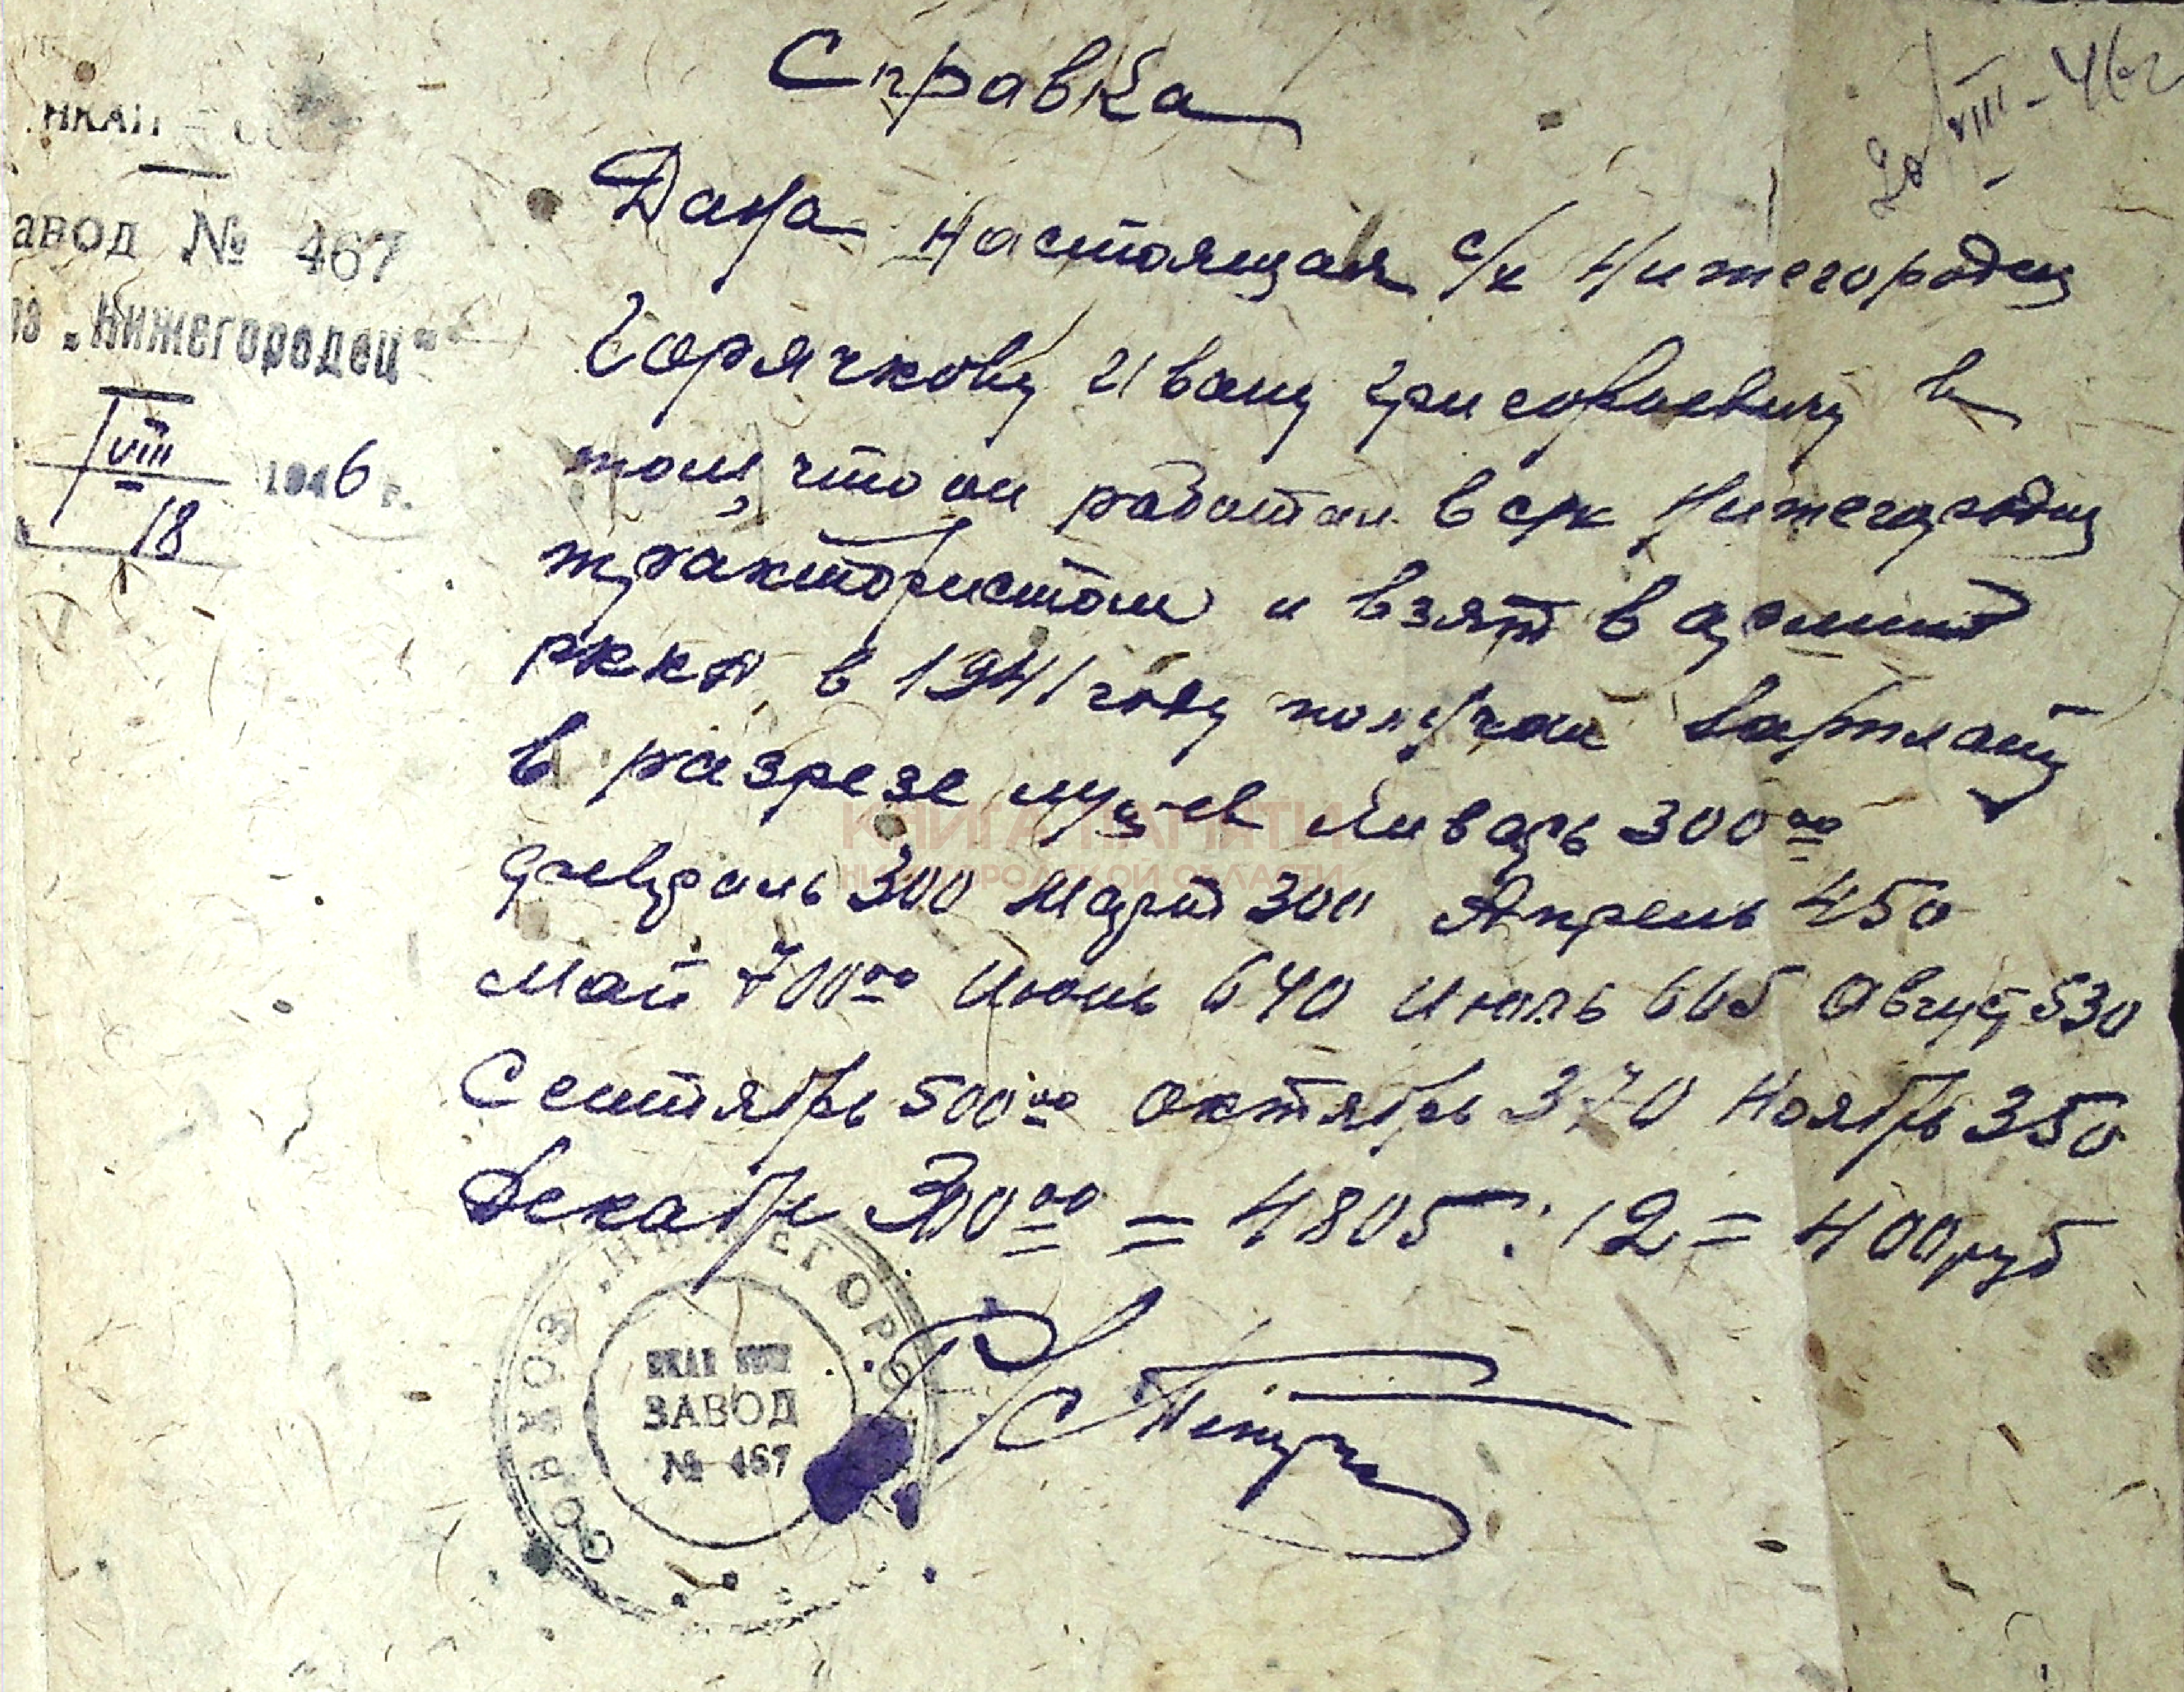 Справка
20/VIII-46г
НКАП
авод № 467
оз „Нижегородец“
VIII
18
1946 г.
Дана настоящая с/х Нижегородец
Горячкову Ивану Григорьевичу в
том, что он работал в с/х Нижегородец
трактористом и взят в армию
РККА в 1941 году получал зарплату
в разрезе м-цев Январь 300 00
февраль 300 Март 300 Апрель 450
Май 700 00 Июнь 640 Июль 665 Август 530
Сентябрь 500 00 октябрь 370 Ноябрь 350
Декабрь 300 00 = 4805 : 12 = 400 руб
КНИГА ПАМЯТИ
НИЖЕГОРОДСКОЙ ОБЛАСТИ
СОВХОЗ „НИЖЕГОРО
НКАП
ЗАВОД
№ 467